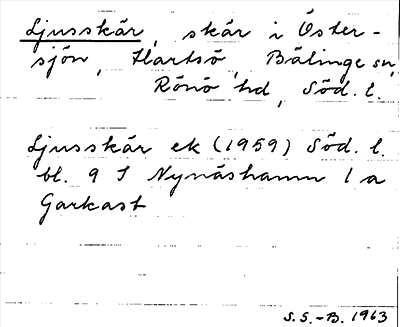 Ljusskär, skär i Öster-
sjön, Hartsö, Bälinge sn,
Rönö hd, Söd. l.
Ljusskär ek (1959) Söd. l.
bl. 9 I Nynäshamn 1 a
Garkast
S.S.-B. 1963